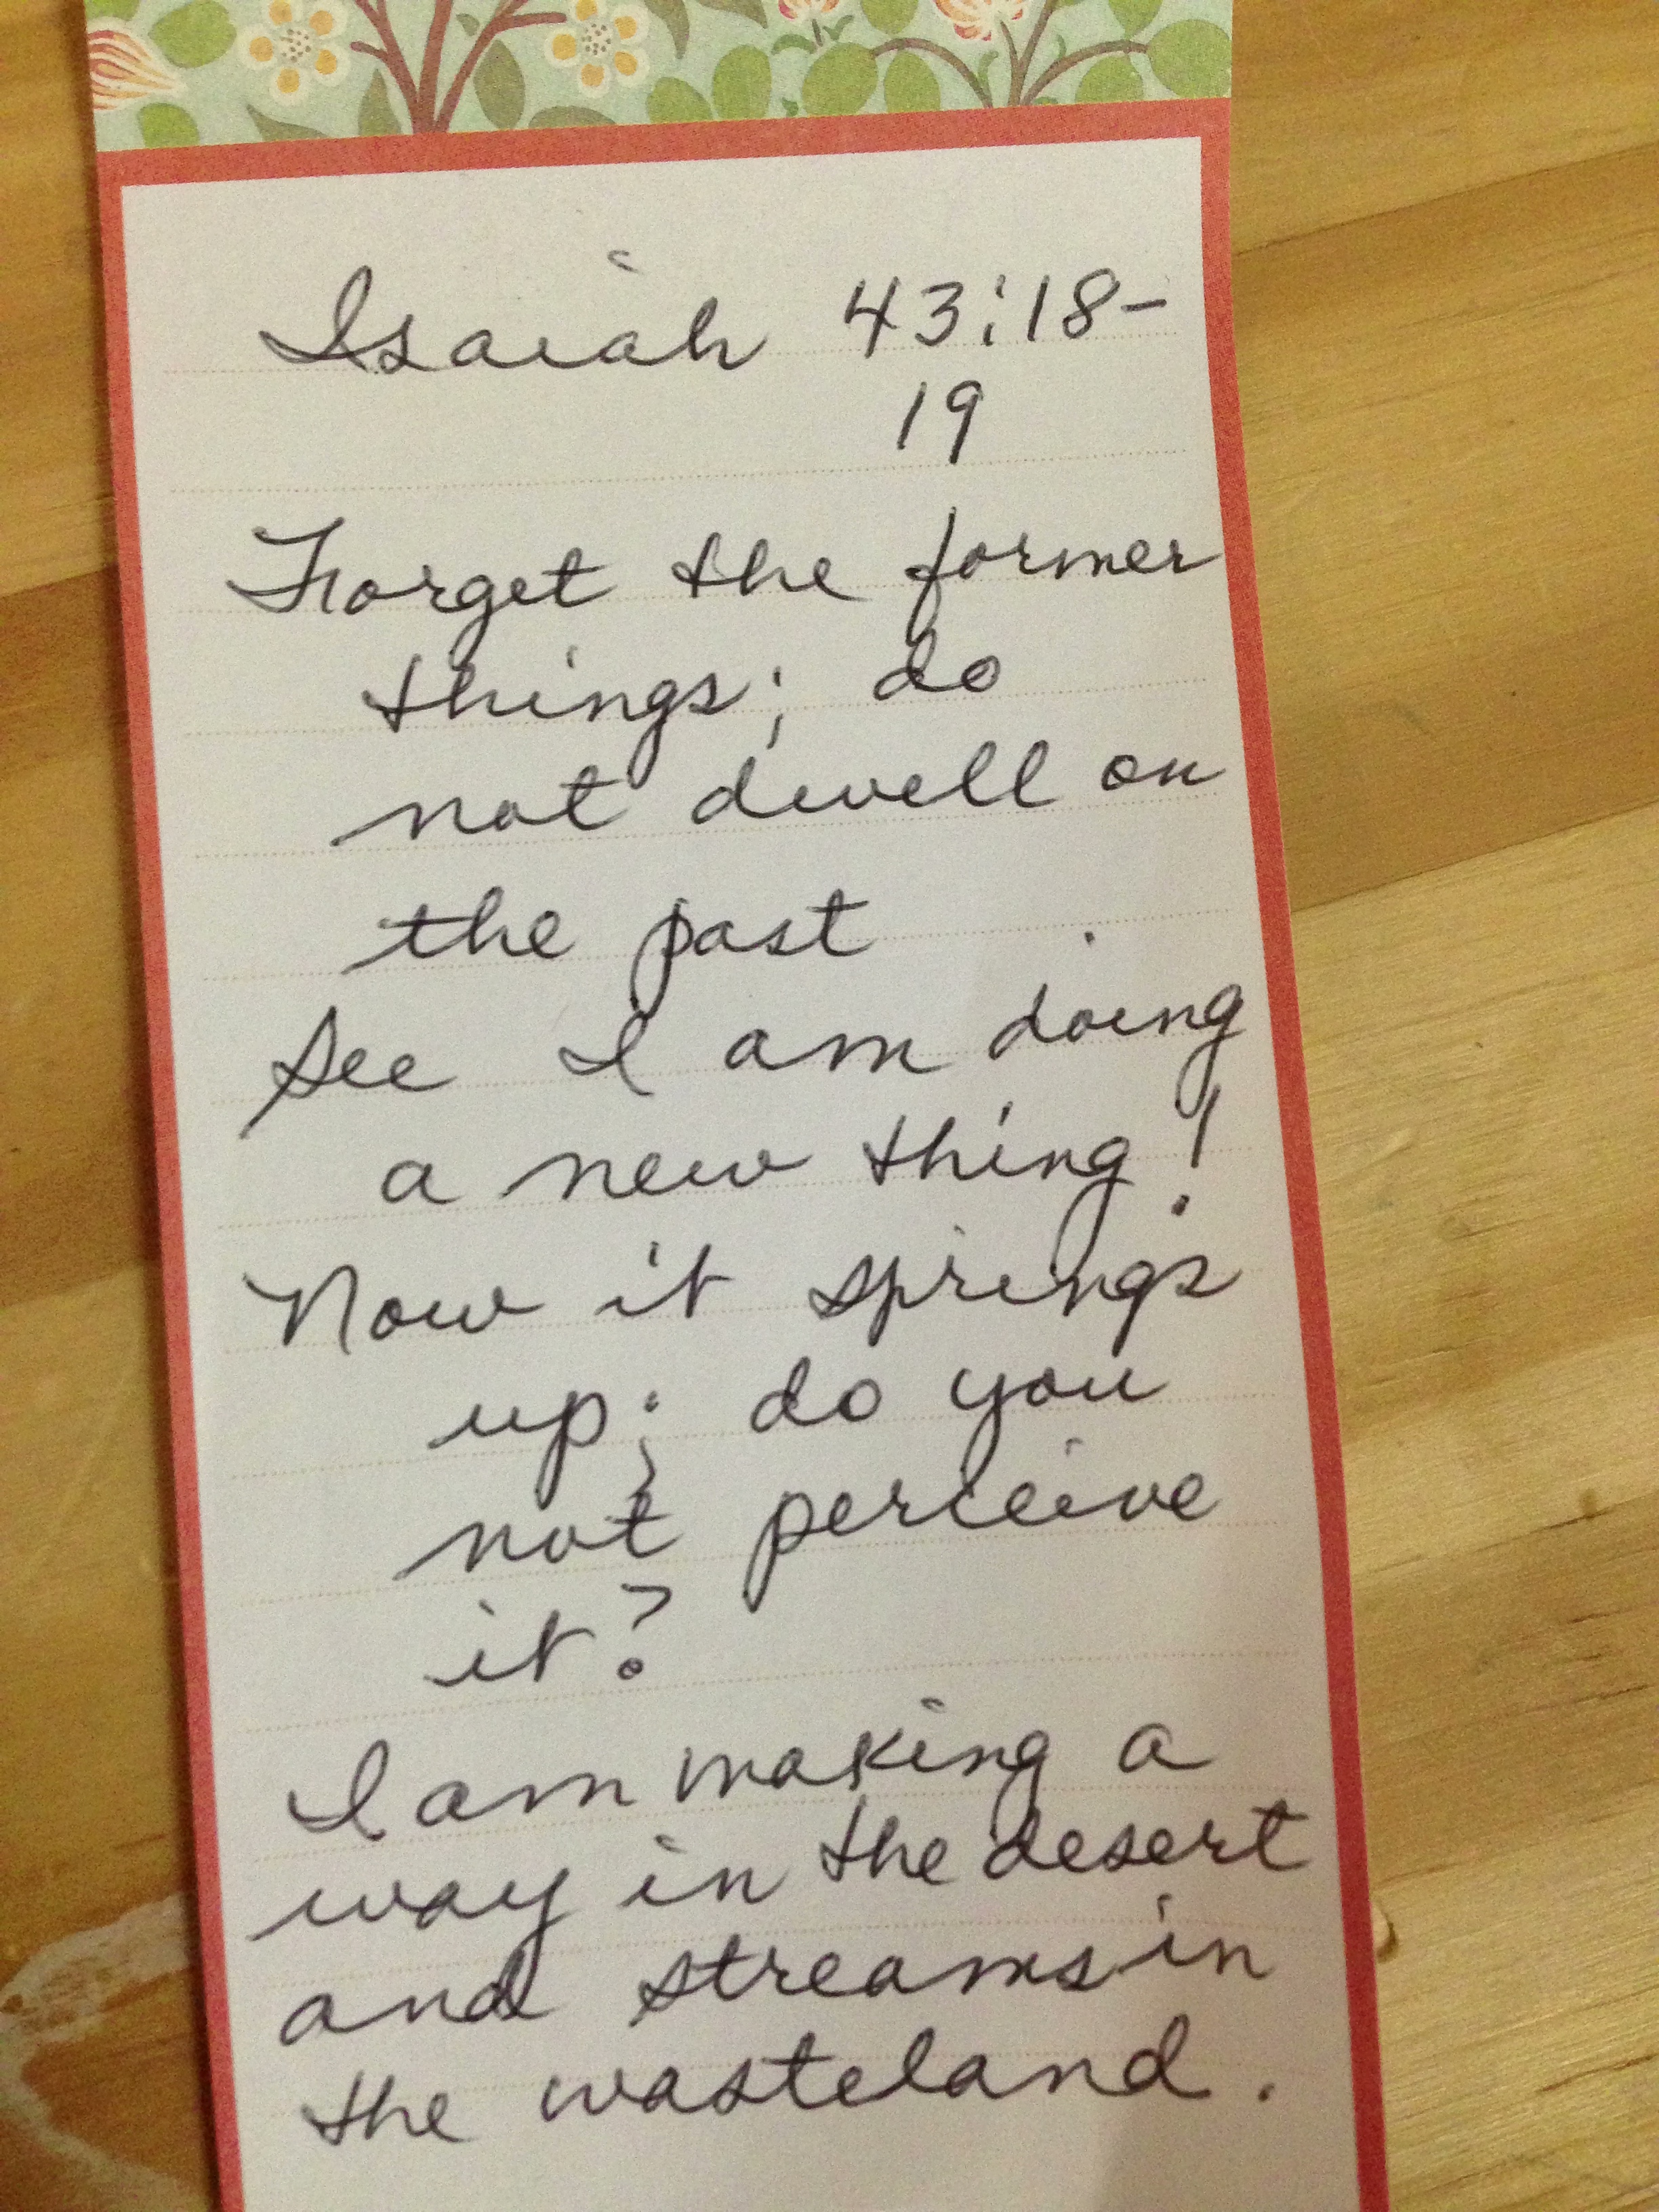 Isaiah 43:18-
19
Forget the former
things; do
not dwell on
the past
See I am doing
a new thing!
Now it springs
up; do you
not perceive
it?
I am making a
way in the desert
and streams in
the wasteland.